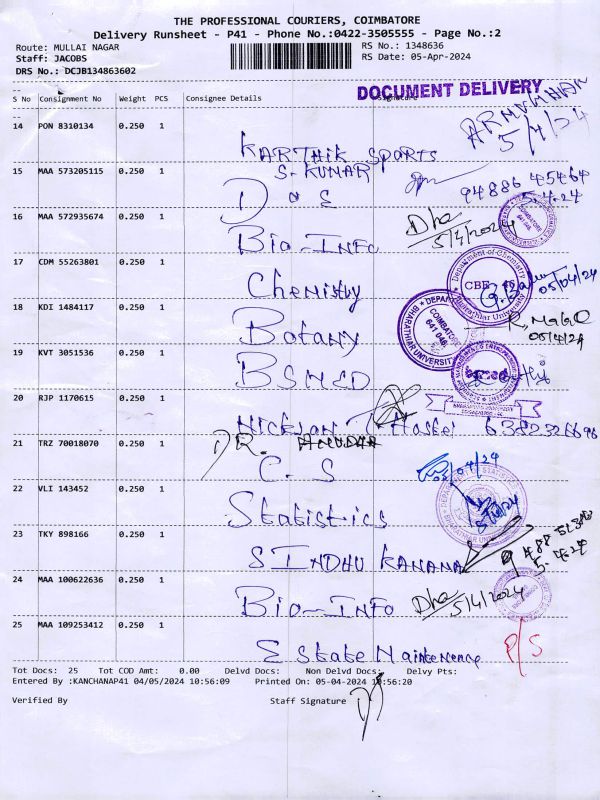 THE PROFESSIONAL COURIERS, COIMBATORE
Delivery Runsheet - P41 - Phone No.:0422-3505555 - Page No.:2
Route: MULLAI NAGAR
RS No.: 1348636
Staff: JACOBS
RS Date: 05-Apr-2024
DRS No.: DCJB134863602
DOCUMENT DELIVERY
S No Consignment No Weight PCS Consignee Details Signature
14 PON 8310134 0.250 1 KARTHIK SPORTS
5/4/24
15 MAA 573205115 0.250 1 S. KUMAR
D O E
94886 45464
5.4.24
16 MAA 572935674 0.250 1 Bio-INFO
Dha
5/4/2024
17 CDM 55263801 0.250 1 Chemistry
Department of Chemistry
CBE - 46
Bharathiar University
05/04/24
18 KDI 1484117 0.250 1 Botany
BHARATHIAR UNIVERSITY
COIMBATORE
641 046
05/4/24
19 KVT 3051536 0.250 1 BSMED
20 RJP 1170615 0.250 1 NICKSON Hostel
21 TRZ 70018070 0.250 1 DR.
C. S
05/04/24
22 VLI 143452 0.250 1 Statistics
23 TKY 898166 0.250 1 SINDHU KANANA
5.4.24
24 MAA 100622636 0.250 1 Bio-INFO
Dha
5/4/2024
25 MAA 109253412 0.250 1 Estate Maintenence
P/S
Tot Docs: 25 Tot COD Amt: 0.00 Delvd Docs: Non Delvd Docs: Delvy Pts:
Entered By :KANCHANAP41 04/05/2024 10:56:09 Printed On: 05-04-2024 10:56:20
Verified By Staff Signature